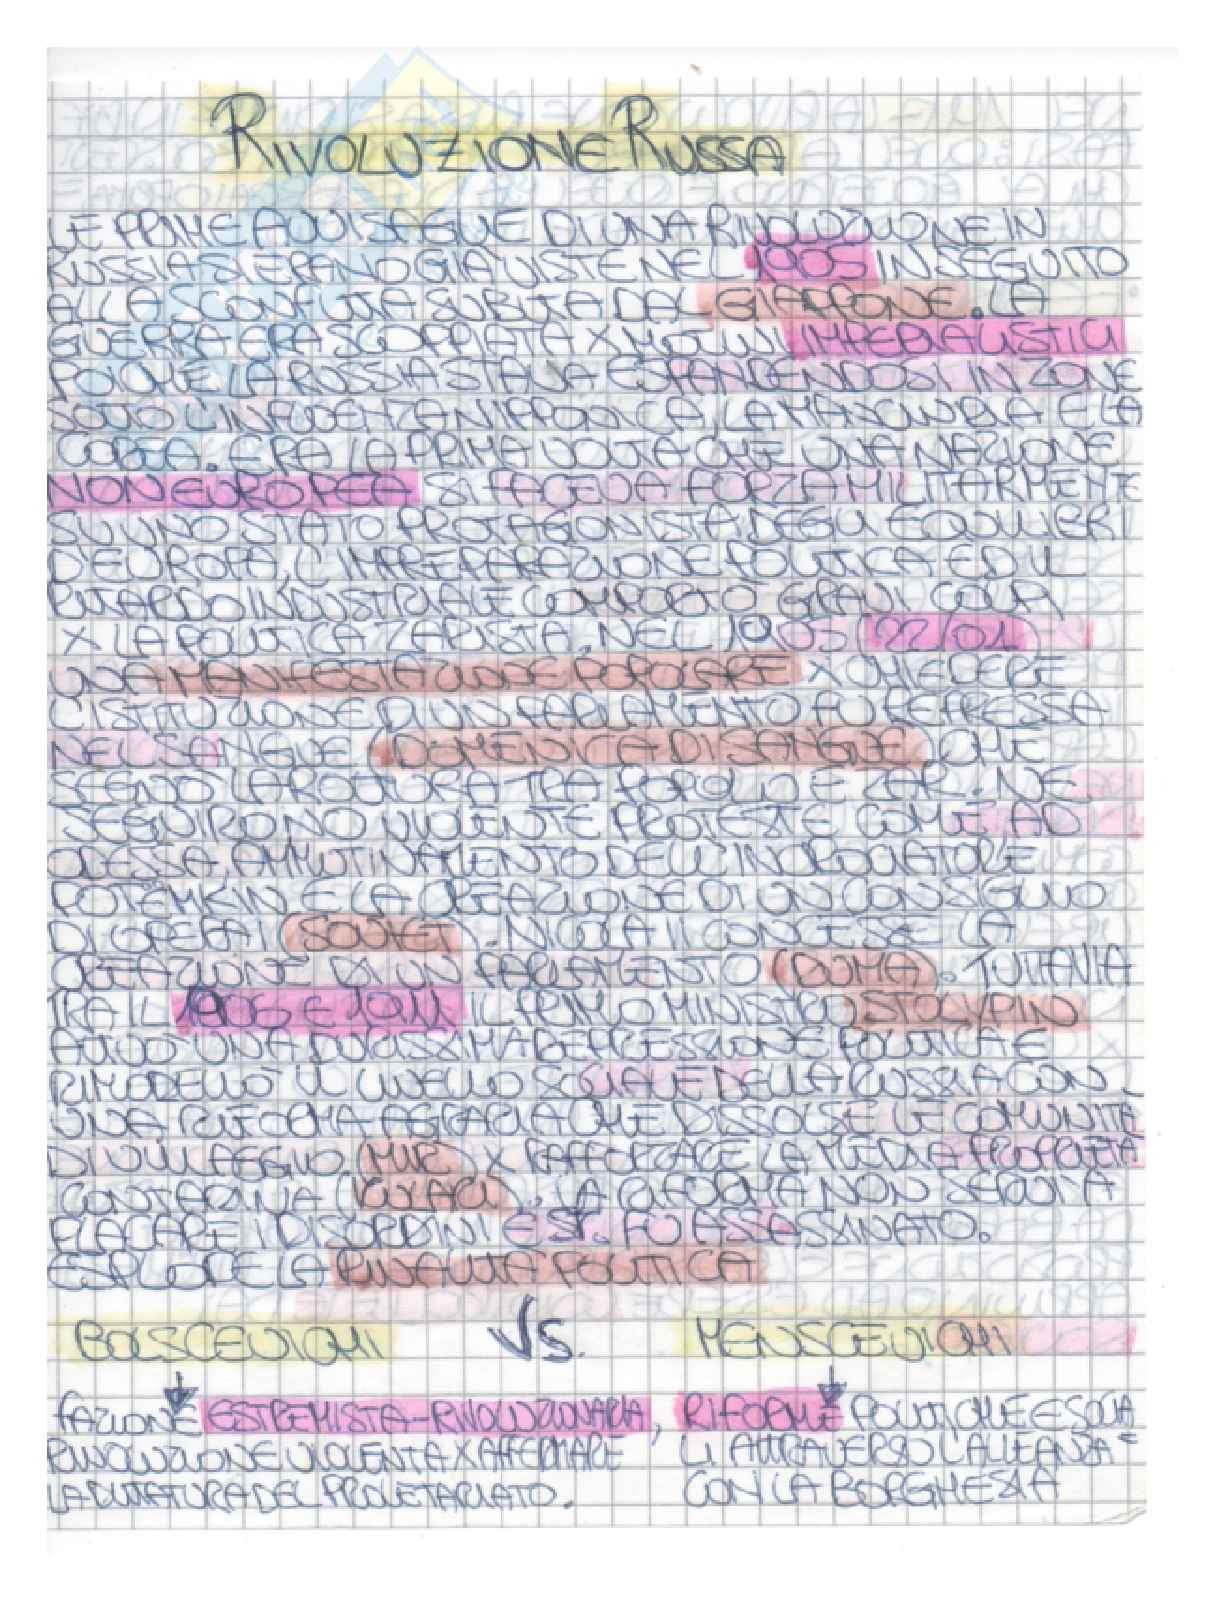 RIVOLUZIONE RUSSA
LE PRIME AVVISAGLIE DI UNA RIVOLUZIONE IN
RUSSIA SI ERANO GIÀ VISTE NEL 1905 IN SEGUITO
ALLA SCONFITTA SUBITA DAL GIAPPONE. LA
GUERRA ERA SCOPPIATA X MOTIVI IMPERIALISTICI
POICHÈ LA RUSSIA STAVA ESPANDENDOSI IN ZONE
SOTTO L'INFLUENZA NIPPONICA, LA MANCIURIA E LA
COREA. ERA LA PRIMA VOLTA CHE UNA NAZIONE
NON EUROPEA SI FACEVA FORZA MILITARMENTE
SU UNO STATO PROTAGONISTA DEGLI EQUILIBRI
D'EUROPA, L'IMPREPARAZIONE POLITICA ED IL
RITARDO INDUSTRIALE COMPORTÒ GRAVI COLPI
X LA POLITICA ZARISTA. NEL 1905 (22/01)
UNA MANIFESTAZIONE POPOLARE X CHIEDERE
L'ISTITUZIONE DI UN PARLAMENTO FU REPRESSA
NEL SANGUE (DOMENICA DI SANGUE) CHE
SEGNÒ LA ROTTURA TRA POPOLO E ZAR. NE
SEGUIRONO VIOLENTE PROTESTE COME AD
ODESSA AMMUTINAMENTO DELL'INCROCIATORE
POTËMKIN E LA CREAZIONE DI UN CONSIGLIO
DI OPERAI (SOVIET). NICOLA II CONCESSE LA
CREAZIONE DI UN PARLAMENTO (DUMA). TUTTAVIA
TRA IL 1906 E 1911 IL PRIMO MINISTRO STOLYPIN
ATTUÒ UNA DURISSIMA REPRESSIONE POLITICA E
RIMODELLÒ IL LIVELLO SOCIALE DELLA RUSSIA CON
UNA RIFORMA AGRARIA CHE DISSOLSE LE COMUNITÀ
DI VILLAGGIO (MIR) X RAFFORZARE LA MEDIA PROPRIETÀ
CONTADINA (KULAKI). LA RIFORMA NON SERVÌ A
PLACARE I DISORDINI E ST. FU ASSASSINATO.
ESPLODE LA RIVALITÀ POLITICA
BOLSCEVICHI VS. MENSCEVICHI
FAZIONE ESTREMISTA-RIVOLUZIONARIA,
RIVOLUZIONE VIOLENTA X AFFERMARE
LA DITTATURA DEL PROLETARIATO.
RIFORME POLITICHE E SOCIA
LI ATTRAVERSO L'ALLEANZA
CON LA BORGHESIA